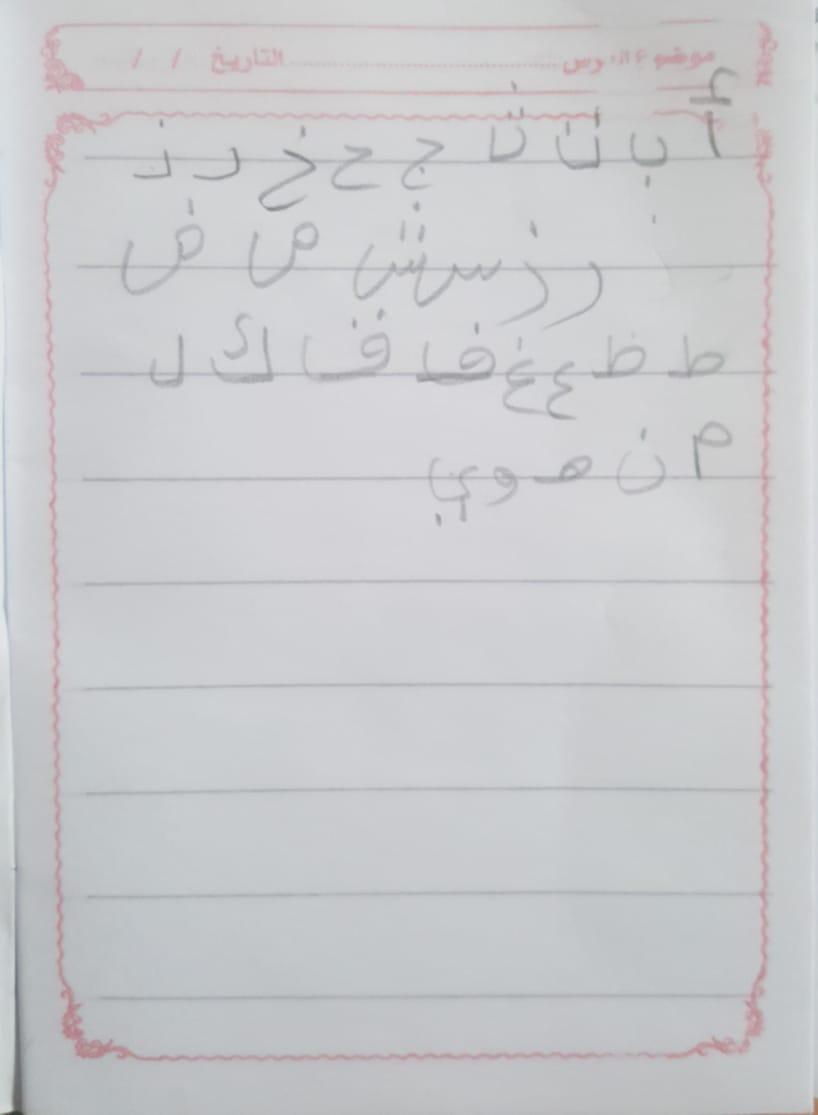 موضوع الدرس ........................ التاريخ / /
أ ب ت ث ج ح خ د ذ
ر ز س ش ص ض
ط ظ ع غ ف ق ك ل
م ن ه و ي